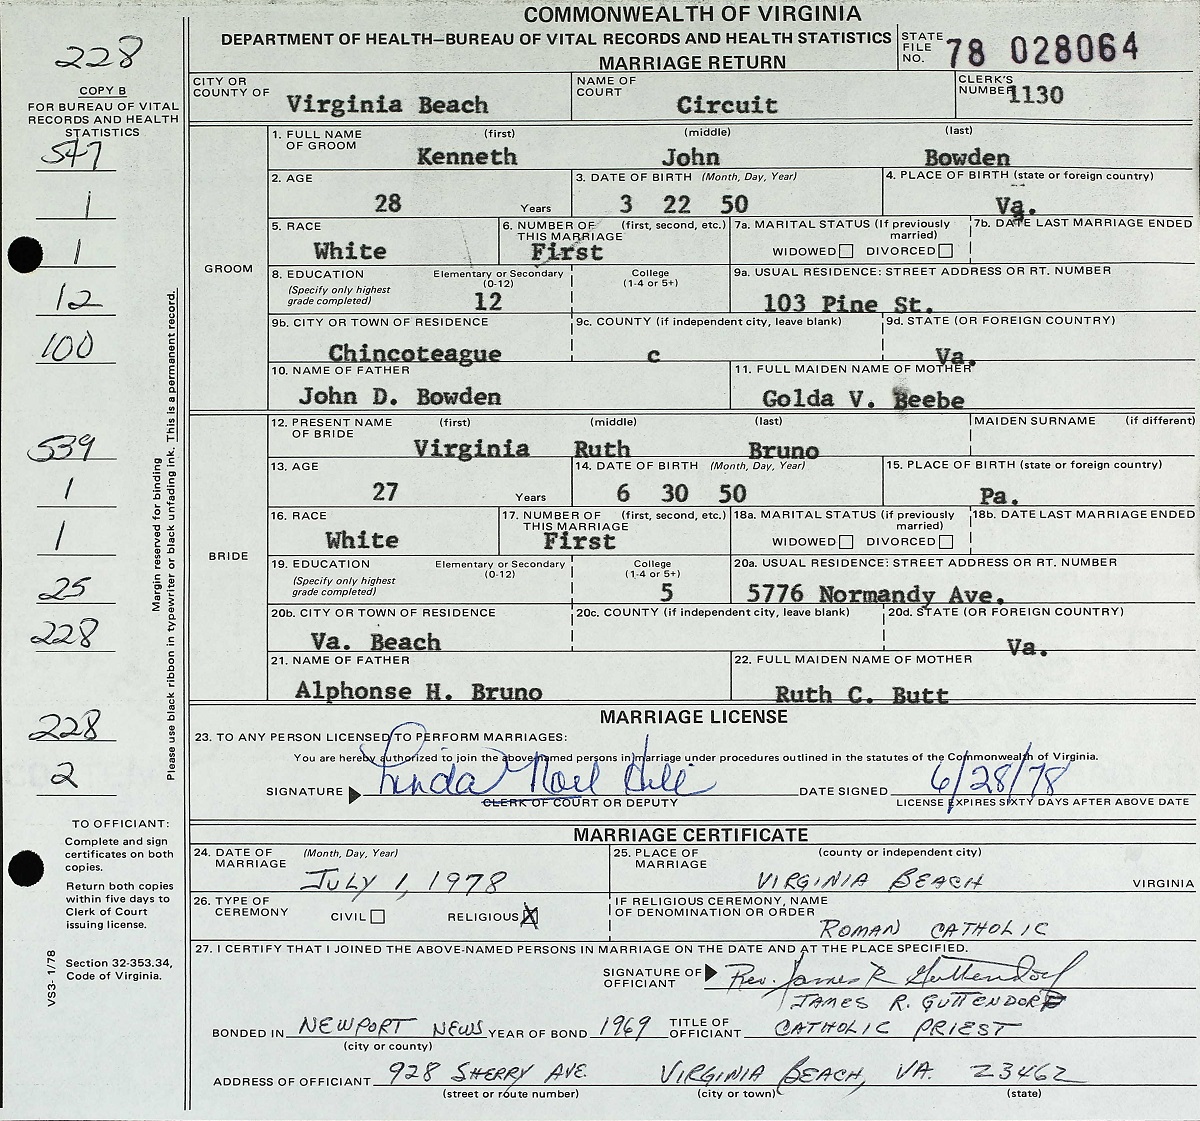 COMMONWEALTH OF VIRGINIA
DEPARTMENT OF HEALTH—BUREAU OF VITAL RECORDS AND HEALTH STATISTICS
MARRIAGE RETURN
STATE FILE NO. 78 028064
228
COPY B
FOR BUREAU OF VITAL
RECORDS AND HEALTH
STATISTICS
547
1
1
12
100
539
1
1
25
228
228
2
Margin reserved for binding
Please use black ribbon in typewriter or black unfading ink. This is a permanent record.
TO OFFICIANT:
Complete and sign
certificates on both
copies.
Return both copies
within five days to
Clerk of Court
issuing license.
Section 32-353.34,
Code of Virginia.
VS3- 1/78
CITY OR COUNTY OF Virginia Beach NAME OF COURT Circuit CLERK'S NUMBER 1130
GROOM
1. FULL NAME OF GROOM (first) (middle) (last)
Kenneth John Bowden
2. AGE 28 Years 3. DATE OF BIRTH (Month, Day, Year) 3 22 50 4. PLACE OF BIRTH (state or foreign country) Va.
5. RACE White 6. NUMBER OF THIS MARRIAGE (first, second, etc.) First 7a. MARITAL STATUS (If previously married) WIDOWED DIVORCED 7b. DATE LAST MARRIAGE ENDED
8. EDUCATION (Specify only highest grade completed) Elementary or Secondary (0-12) 12 College (1-4 or 5+) 9a. USUAL RESIDENCE: STREET ADDRESS OR RT. NUMBER 103 Pine St.
9b. CITY OR TOWN OF RESIDENCE Chincoteague 9c. COUNTY (if independent city, leave blank) c 9d. STATE (OR FOREIGN COUNTRY) Va.
10. NAME OF FATHER John D. Bowden 11. FULL MAIDEN NAME OF MOTHER Golda V. Beebe
BRIDE
12. PRESENT NAME OF BRIDE (first) (middle) (last) MAIDEN SURNAME (if different)
Virginia Ruth Bruno
13. AGE 27 Years 14. DATE OF BIRTH (Month, Day, Year) 6 30 50 15. PLACE OF BIRTH (state or foreign country) Pa.
16. RACE White 17. NUMBER OF THIS MARRIAGE (first, second, etc.) First 18a. MARITAL STATUS (if previously married) WIDOWED DIVORCED 18b. DATE LAST MARRIAGE ENDED
19. EDUCATION (Specify only highest grade completed) Elementary or Secondary (0-12) College (1-4 or 5+) 5 20a. USUAL RESIDENCE: STREET ADDRESS OR RT. NUMBER 5776 Normandy Ave.
20b. CITY OR TOWN OF RESIDENCE Va. Beach 20c. COUNTY (if independent city, leave blank) 20d. STATE (OR FOREIGN COUNTRY) Va.
21. NAME OF FATHER Alphonse H. Bruno 22. FULL MAIDEN NAME OF MOTHER Ruth C. Butt
MARRIAGE LICENSE
23. TO ANY PERSON LICENSED TO PERFORM MARRIAGES:
You are hereby authorized to join the above-named persons in marriage under procedures outlined in the statutes of the Commonwealth of Virginia.
SIGNATURE Linda Noel DATE SIGNED 6/28/78
CLERK OF COURT OR DEPUTY LICENSE EXPIRES SIXTY DAYS AFTER ABOVE DATE
MARRIAGE CERTIFICATE
24. DATE OF MARRIAGE (Month, Day, Year) JULY 1, 1978 25. PLACE OF MARRIAGE (county or independent city) VIRGINIA BEACH VIRGINIA
26. TYPE OF CEREMONY CIVIL RELIGIOUS X IF RELIGIOUS CEREMONY, NAME OF DENOMINATION OR ORDER ROMAN CATHOLIC
27. I CERTIFY THAT I JOINED THE ABOVE-NAMED PERSONS IN MARRIAGE ON THE DATE AND AT THE PLACE SPECIFIED.
SIGNATURE OF OFFICIANT Rev. James R Guttendorf
JAMES R. GUTTENDORF
BONDED IN NEWPORT NEWS YEAR OF BOND 1969 TITLE OF OFFICIANT CATHOLIC PRIEST
(city or county)
ADDRESS OF OFFICIANT 928 SHERRY AVE. VIRGINIA BEACH, VA. 23462
(street or route number) (city or town) (state)